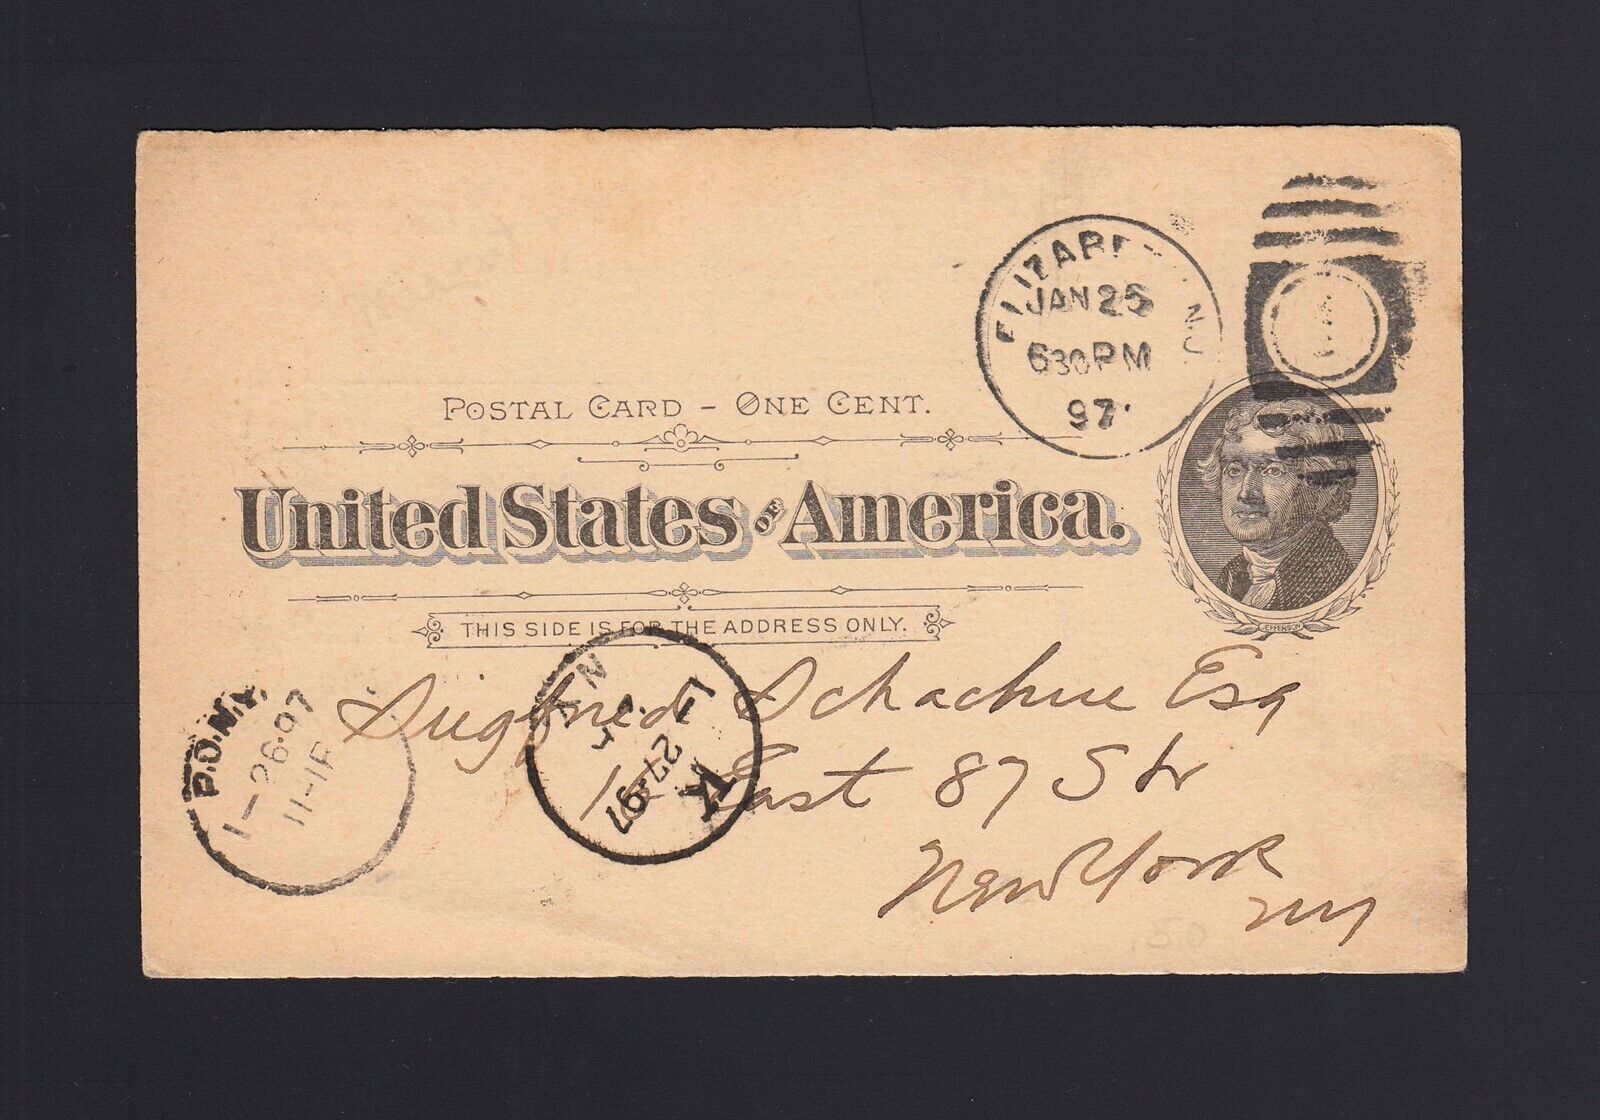 ELIZABE N.J.
JAN 25
630 PM
97
POSTAL CARD - ONE CENT.
United States OF America.
JEFFERSON
THIS SIDE IS FOR THE ADDRESS ONLY.
Siegfried Schachne Esq
East 87 Str
New York
NY
P.O.N.Y.
1-26-97
11-1P
N.Y.
1-27-97
K